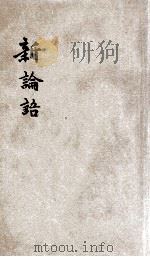 新論語
mtoou.info